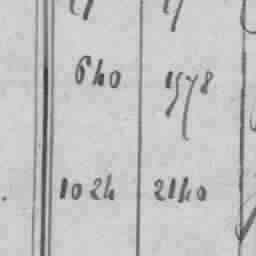 640 1578
1024 2140